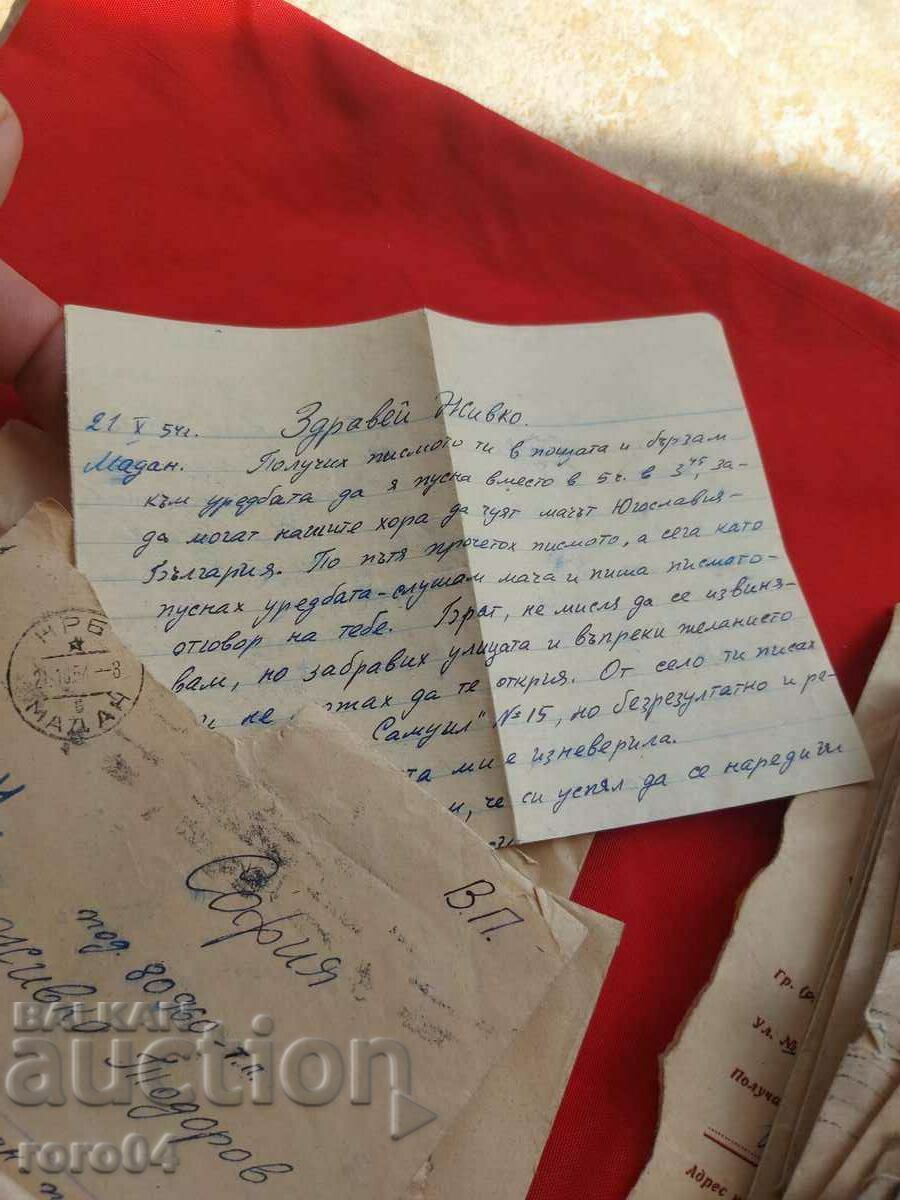 21 X 54г.
Здравей Живко.
Мадан. Получих писмото ти в пощата и бързам
към уредбата да я пусна вместо в 5ч. в 3 45, за-
да могат нашите хора да чуят мачът Югославия-
България. По пътя прочетох писмото, а сега като
пуснах уредбата-слушам мача и пиша писмото-
отговор на тебе. Брат, не мисля да се извиня-
вам, но забравих улицата и въпреки желанието
не да те открия. От село ти писах
Самуил" №15, но безрезултатно и
та ми е изневерила.
че си успял да се наредиш
НРБ
МАДАН
София
В.П.
под. 80960-т.п.
Живко Тодоров
Гр.
Ул. №
Получа
Адрес
BALKAN
auction
roro04